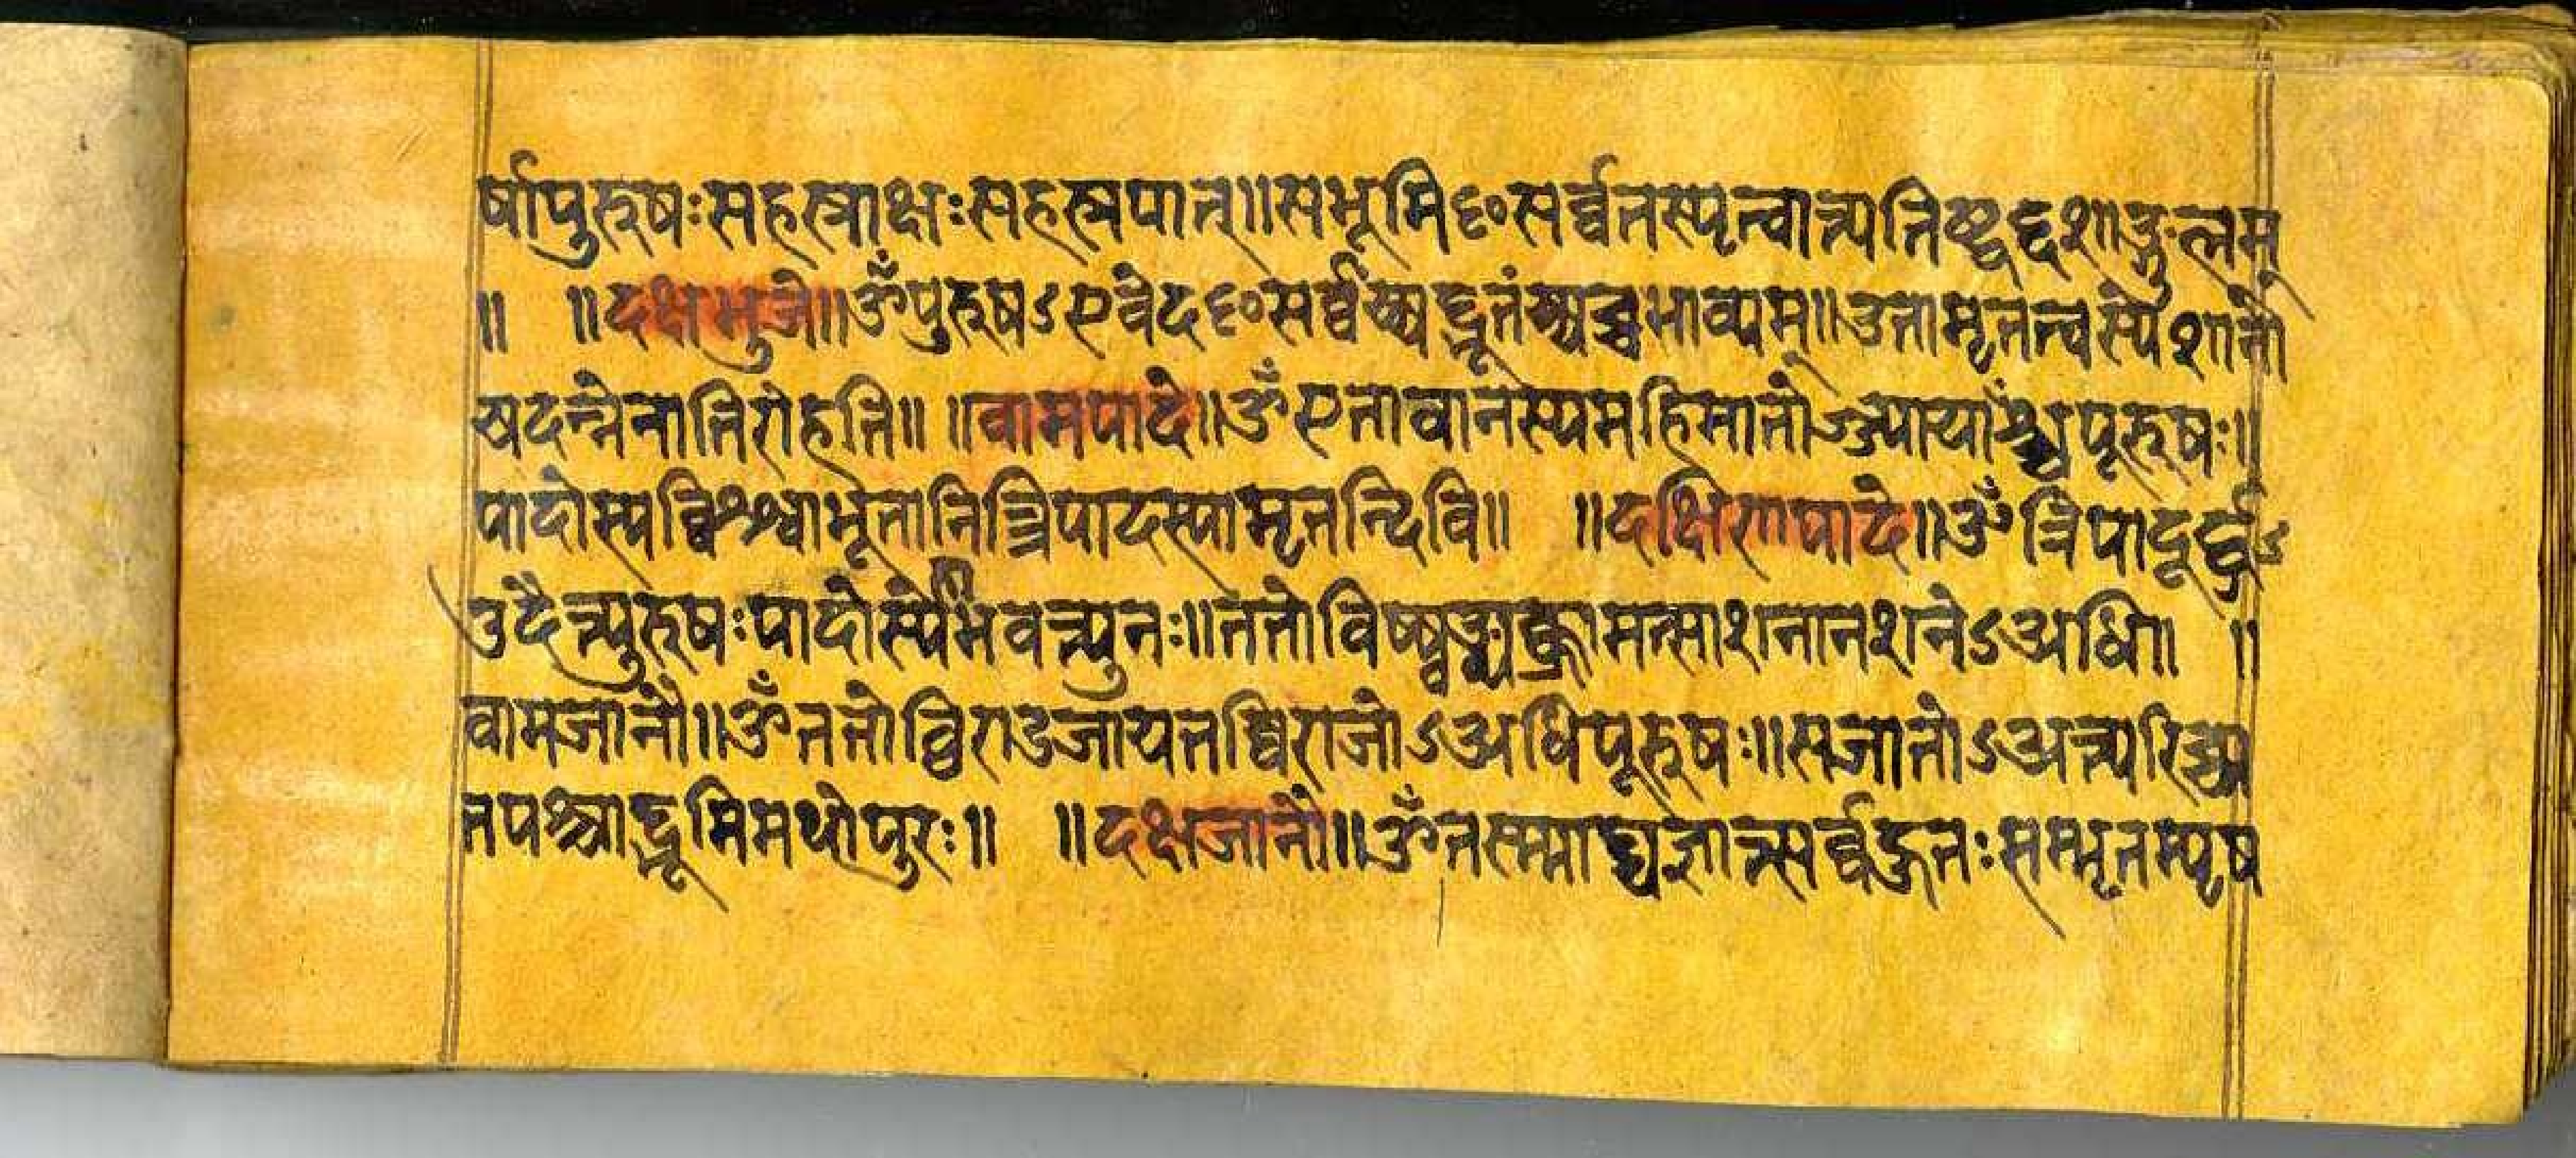 र्षापुरूषःसहस्राक्षःसहस्रपात्॥सभूमिꣳसर्व्वतस्पृत्वात्त्यतिष्ठद्दशाङुलम्
॥ ॥दक्षभुजे॥ॐपुरूषऽएवेदꣳसर्व्वंय्यद्भूतंय्यच्चभाव्यम्॥उतामृतत्वस्येशानो
यदन्नेनातिरोहति॥ ॥वामपादे॥ॐएतावानस्यमहिमातोज्ज्यायाँश्चपूरूषः॥
पादोस्यव्विश्श्वाभूतानित्त्रिपादस्यामृतन्दिवि॥ ॥दक्षिणपादे॥ॐत्रिपादूर्द्ध्वऽ
उदैत्पुरूषःपादोस्येहाभवत्पुनः॥ततोविष्ष्वङ्व्यक्क्रामत्साशनानशनेऽअभि॥ ॥
वामजानौ॥ॐततोव्विराडजायतव्विराजोऽअधिपूरूषः॥सजातोऽअत्यरिच्य
तपश्चाद्भूमिमथोपुरः॥ ॥दक्षजानौ॥ॐतस्माद्यज्ञात्सर्व्वहुतःसम्भृतम्पृष